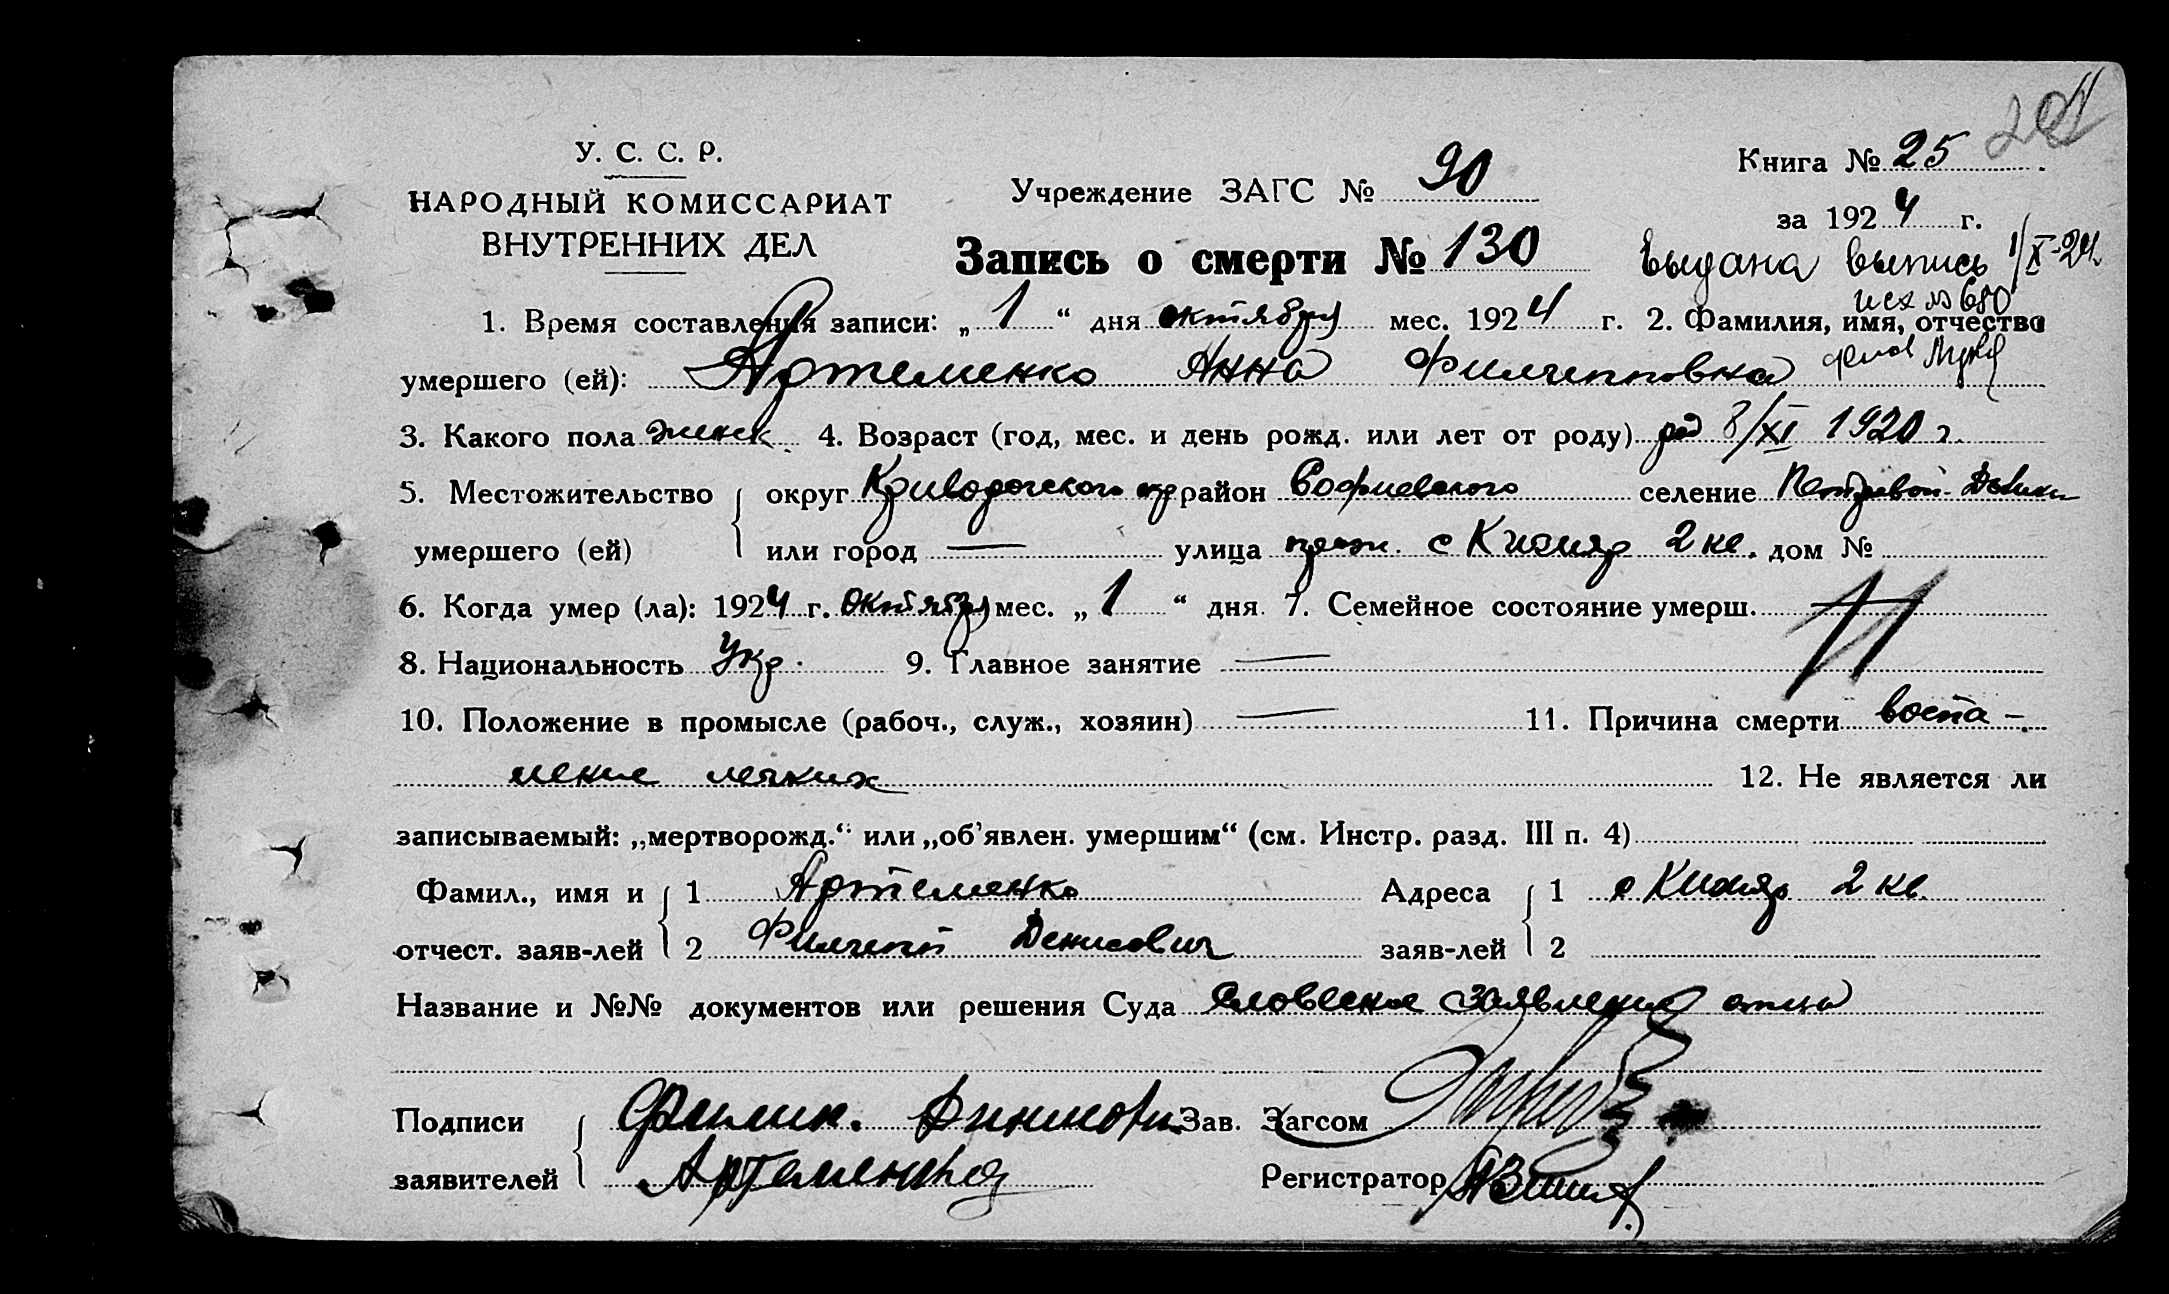 У. С. С. Р.
НАРОДНЫЙ КОМИССАРИАТ
ВНУТРЕННИХ ДЕЛ
Учреждение ЗАГС № 90
Книга № 25
за 1924 г.
Запись о смерти № 130
Выдана выпись 1/X-24.
исх № 680
1. Время составления записи: „ 1 “ дня октября мес. 1924 г. 2. Фамилия, имя, отчество
умершего (ей): Артеменко Анна Филипповна
3. Какого пола женск. 4. Возраст (год, мес. и день рожд. или лет от роду) род 8/XI 1920 г.
5. Местожительство округ Криворожского окр район Софиевского селение
умершего (ей) или город — улица прож. с Кизляр 2 кв. дом №
6. Когда умер (ла): 1924 г. октября мес. „ 1 “ дня. 7. Семейное состояние умерш.
8. Национальность Укр. 9. Главное занятие —
10. Положение в промысле (рабоч., служ., хозяин) — 11. Причина смерти воспа-
ление легких 12. Не является ли
записываемый: „мертворожд.“ или „об'явлен. умершим“ (см. Инстр. разд. III п. 4)
Фамил., имя и 1 Артеменко Адреса 1 с Кизляр 2 кв.
отчест. заяв-лей 2 Филипп Денисович заяв-лей 2
Название и №№ документов или решения Суда Словесное заявление отца
Подписи Филип. Зав. Загсом
заявителей Артеменко Регистратор